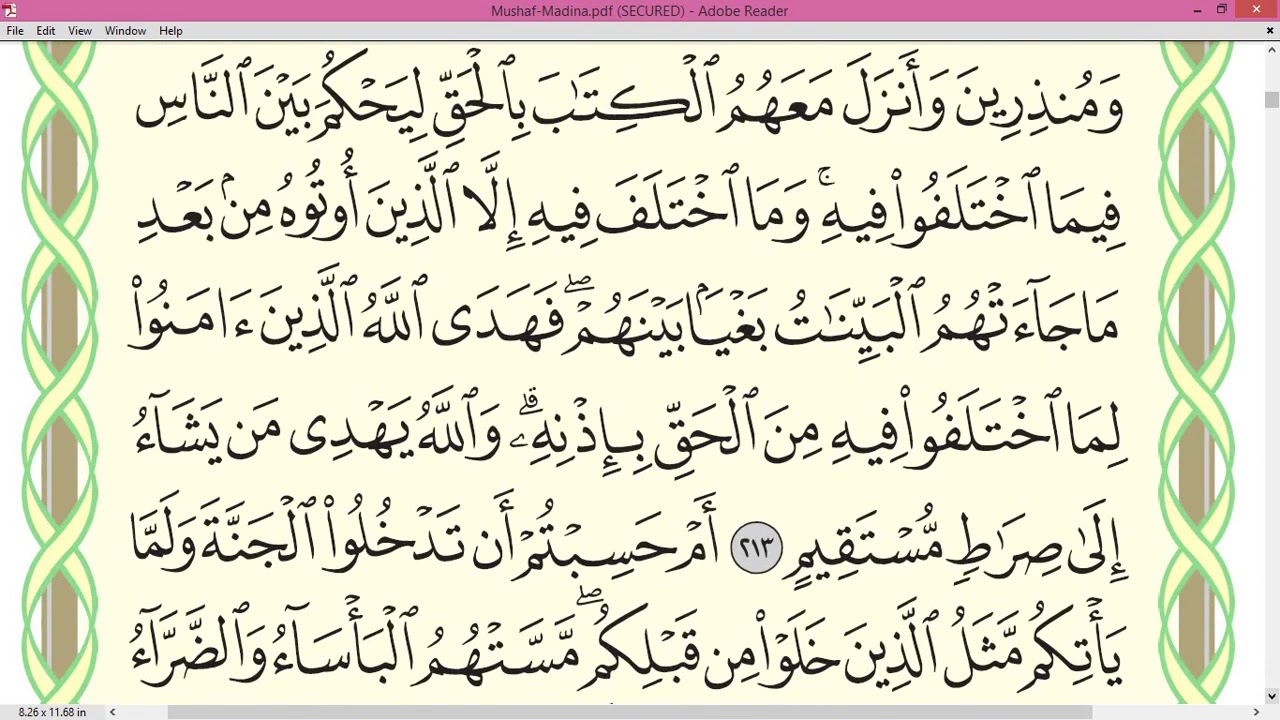 Mushaf-Madina.pdf (SECURED) - Adobe Reader
File Edit View Window Help
وَمُنذِرِينَ وَأَنزَلَ مَعَهُمُ ٱلْكِتَٰبَ بِٱلْحَقِّ لِيَحْكُمَ بَيْنَ ٱلنَّاسِ
فِيمَا ٱخْتَلَفُوا۟ فِيهِ ۚ وَمَا ٱخْتَلَفَ فِيهِ إِلَّا ٱلَّذِينَ أُوتُوهُ مِنۢ بَعْدِ
مَا جَآءَتْهُمُ ٱلْبَيِّنَٰتُ بَغْيًۢا بَيْنَهُمْ ۖ فَهَدَى ٱللَّهُ ٱلَّذِينَ ءَامَنُوا۟
لِمَا ٱخْتَلَفُوا۟ فِيهِ مِنَ ٱلْحَقِّ بِإِذْنِهِۦ ۗ وَٱللَّهُ يَهْدِى مَن يَشَآءُ
إِلَىٰ صِرَٰطٍ مُّسْتَقِيمٍ ٢١٣ أَمْ حَسِبْتُمْ أَن تَدْخُلُوا۟ ٱلْجَنَّةَ وَلَمَّا
يَأْتِكُم مَّثَلُ ٱلَّذِينَ خَلَوْا۟ مِن قَبْلِكُم ۖ مَّسَّتْهُمُ ٱلْبَأْسَآءُ وَٱلضَّرَّآءُ
8.26 x 11.68 in